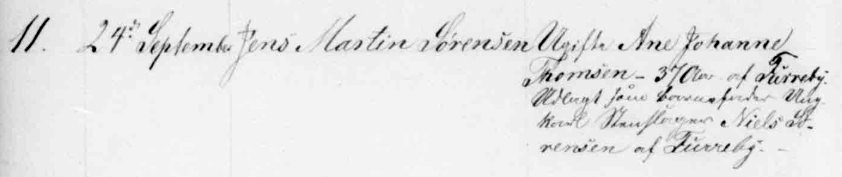 11. 24de September Jens Martin Sørensen Ugifte Ane Johanne
Thomsen - 37 Aar af Furreby.
Udlagt som barnefader Ung-
karl Stenhugger Niels Sø-
rensen af Furreby. -